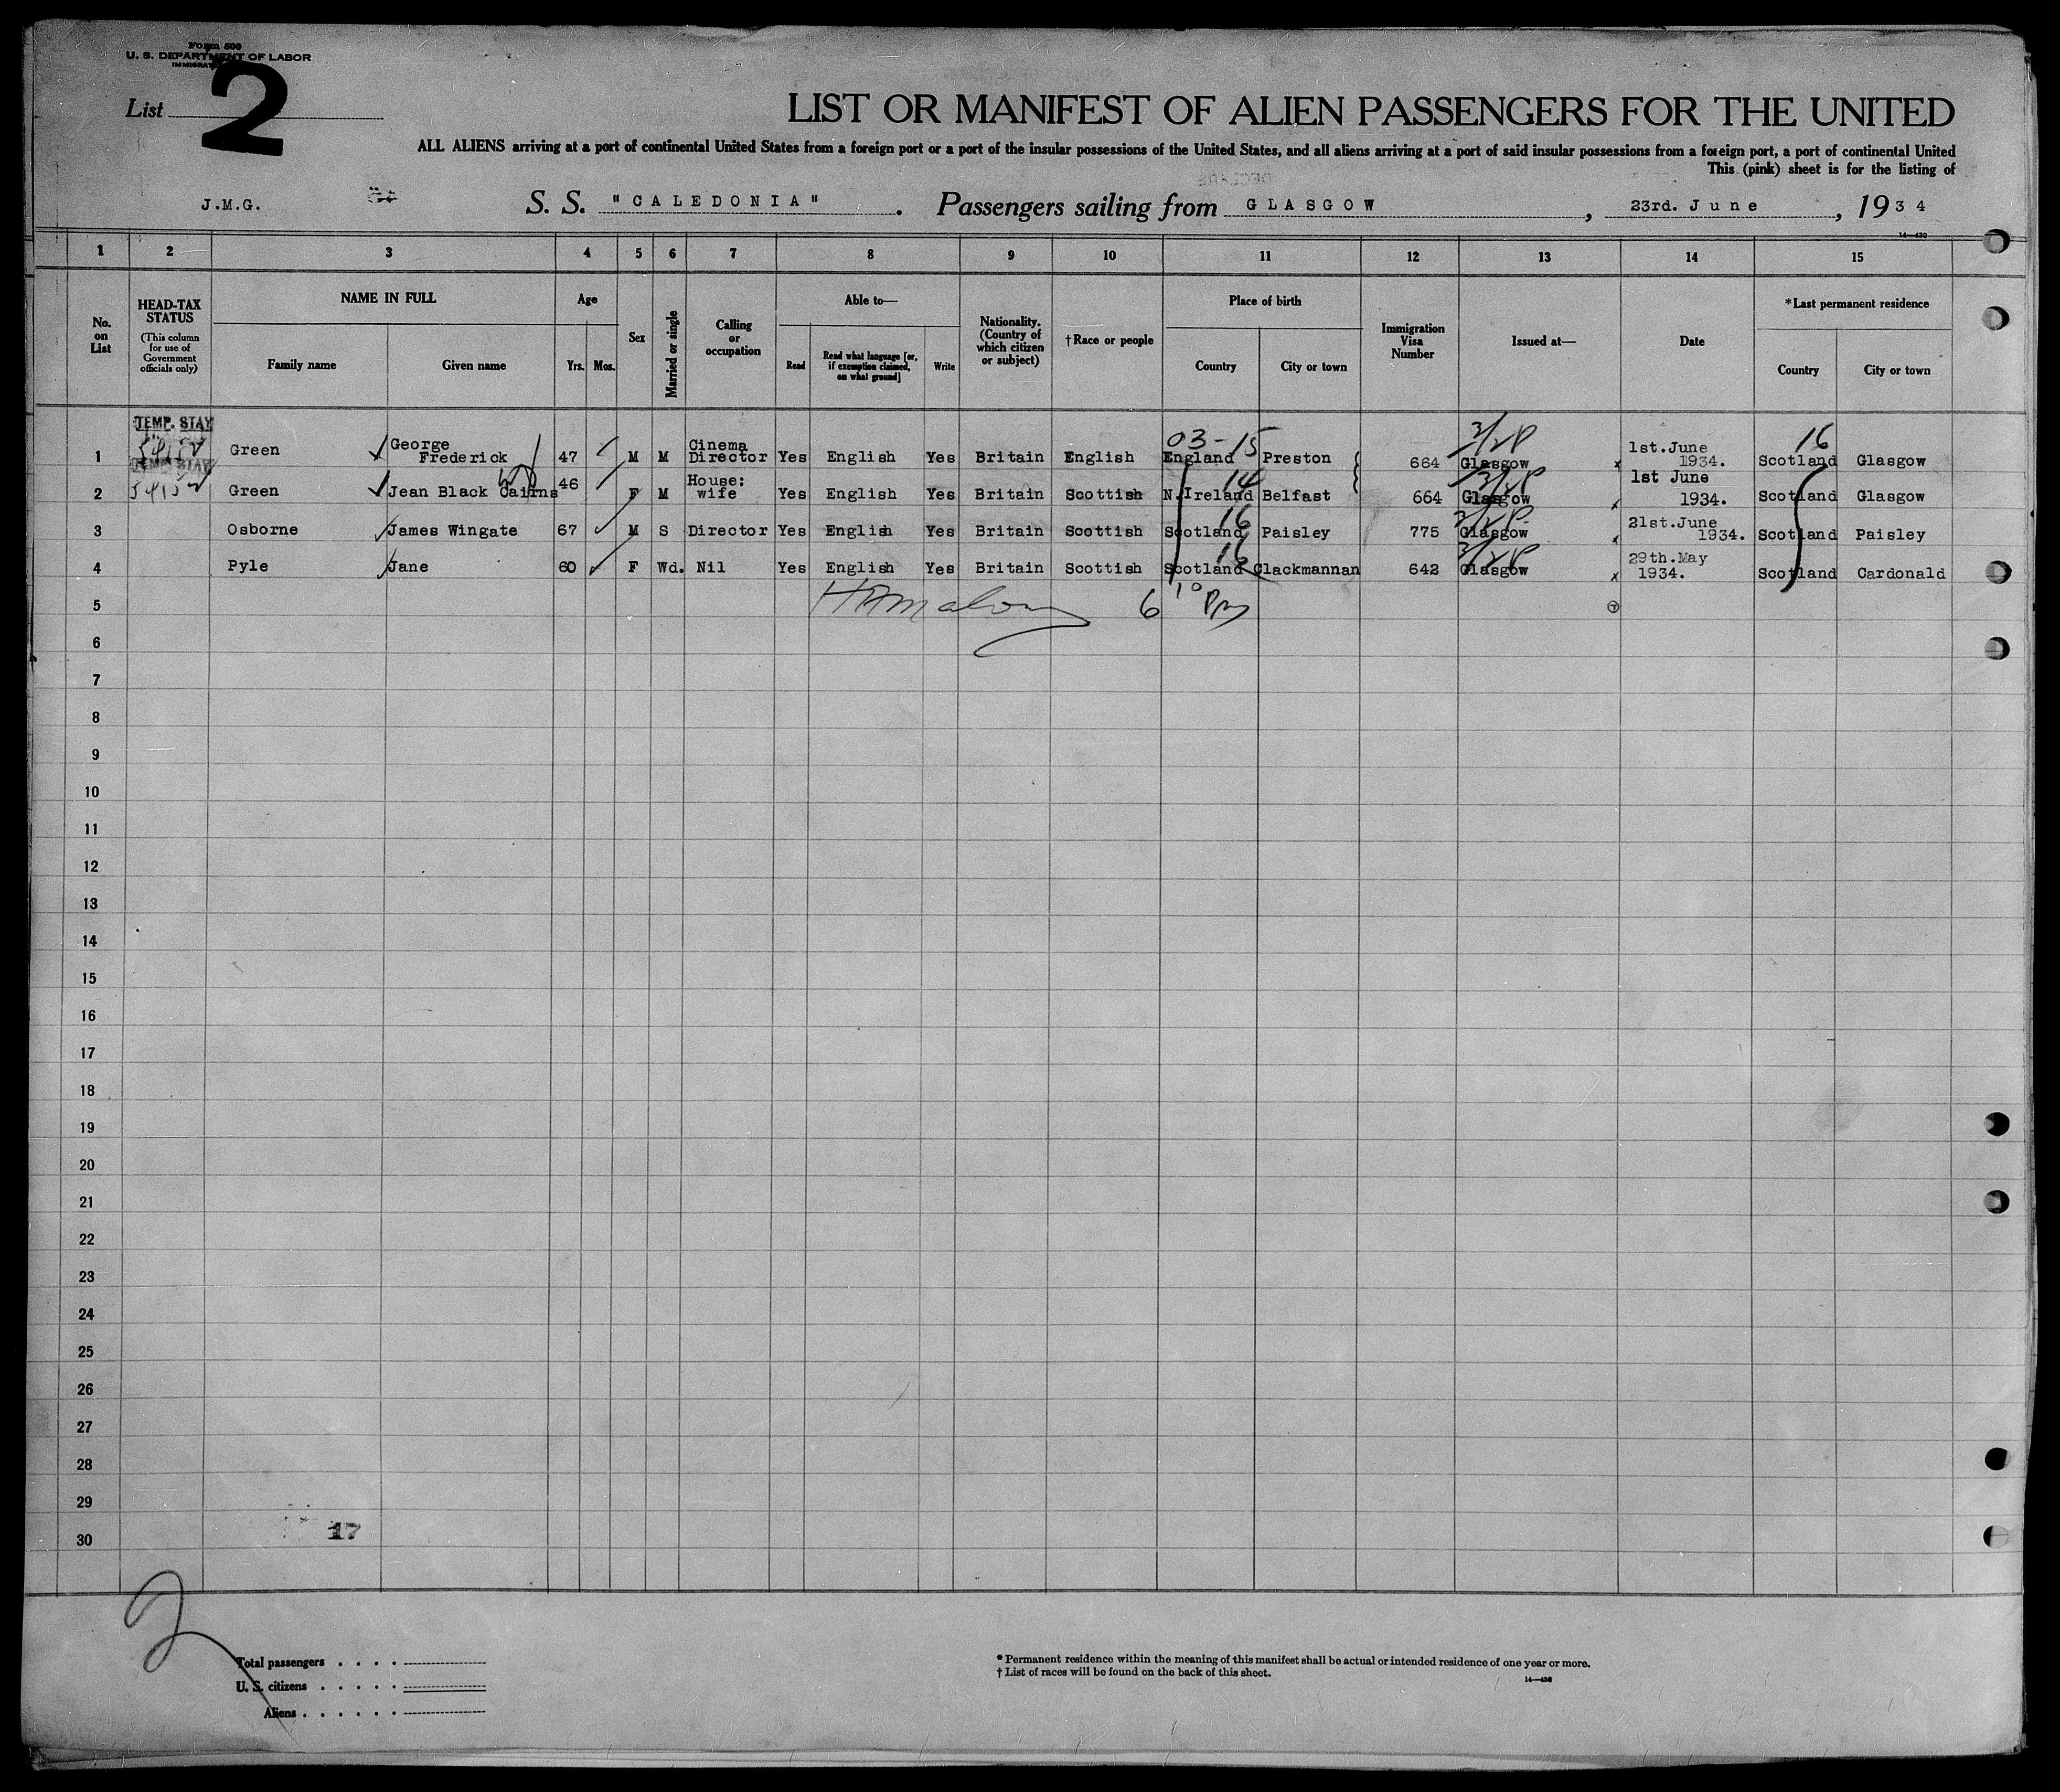 Form 500
U. S. DEPARTMENT OF LABOR
List 2
LIST OR MANIFEST OF ALIEN PASSENGERS FOR THE UNITED
ALL ALIENS arriving at a port of continental United States from a foreign port or a port of the insular possessions of the United States, and all aliens arriving at a port of said insular possessions from a foreign port, a port of continental United
This (pink) sheet is for the listing of
J.M.G. S. S. "CALEDONIA". Passengers sailing from GLASGOW, 23rd. June, 1934
14—430
1 2 3 4 5 6 7 8 9 10 11 12 13 14 15
No. on List
HEAD-TAX STATUS
(This column for use of Government officials only)
NAME IN FULL
Family name Given name
Age
Yrs. Mos.
Sex
Married or single
Calling or occupation
Able to—
Read
Read what language [or, if exemption claimed, on what ground]
Write
Nationality. (Country of which citizen or subject)
†Race or people
Place of birth
Country City or town
Immigration Visa Number
Issued at—
Date
*Last permanent residence
Country City or town
TEMP. STAY 03-15 16
1 Green George Frederick 47 M M Cinema Director Yes English Yes Britain English England Preston 664 Glasgow 1st.June 1934. Scotland Glasgow
TEMP. STAY 14
2 Green Jean Black Cairns 46 F M House: wife Yes English Yes Britain Scottish N.Ireland Belfast 664 Glasgow 1st June 1934. Scotland Glasgow
16
3 Osborne James Wingate 67 M S Director Yes English Yes Britain Scottish Scotland Paisley 775 Glasgow 21st.June 1934. Scotland Paisley
16
4 Pyle Jane 60 F Wd. Nil Yes English Yes Britain Scottish Scotland Clackmannan 642 Glasgow 29th.May 1934. Scotland Cardonald
5 6 10 Pm
6
7
8
9
10
11
12
13
14
15
16
17
18
19
20
21
22
23
24
25
26
27
28
29
30 17
2
Total passengers . . . .
U. S. citizens . . . . .
Aliens . . . . . .
* Permanent residence within the meaning of this manifest shall be actual or intended residence of one year or more.
† List of races will be found on the back of this sheet.
14—430